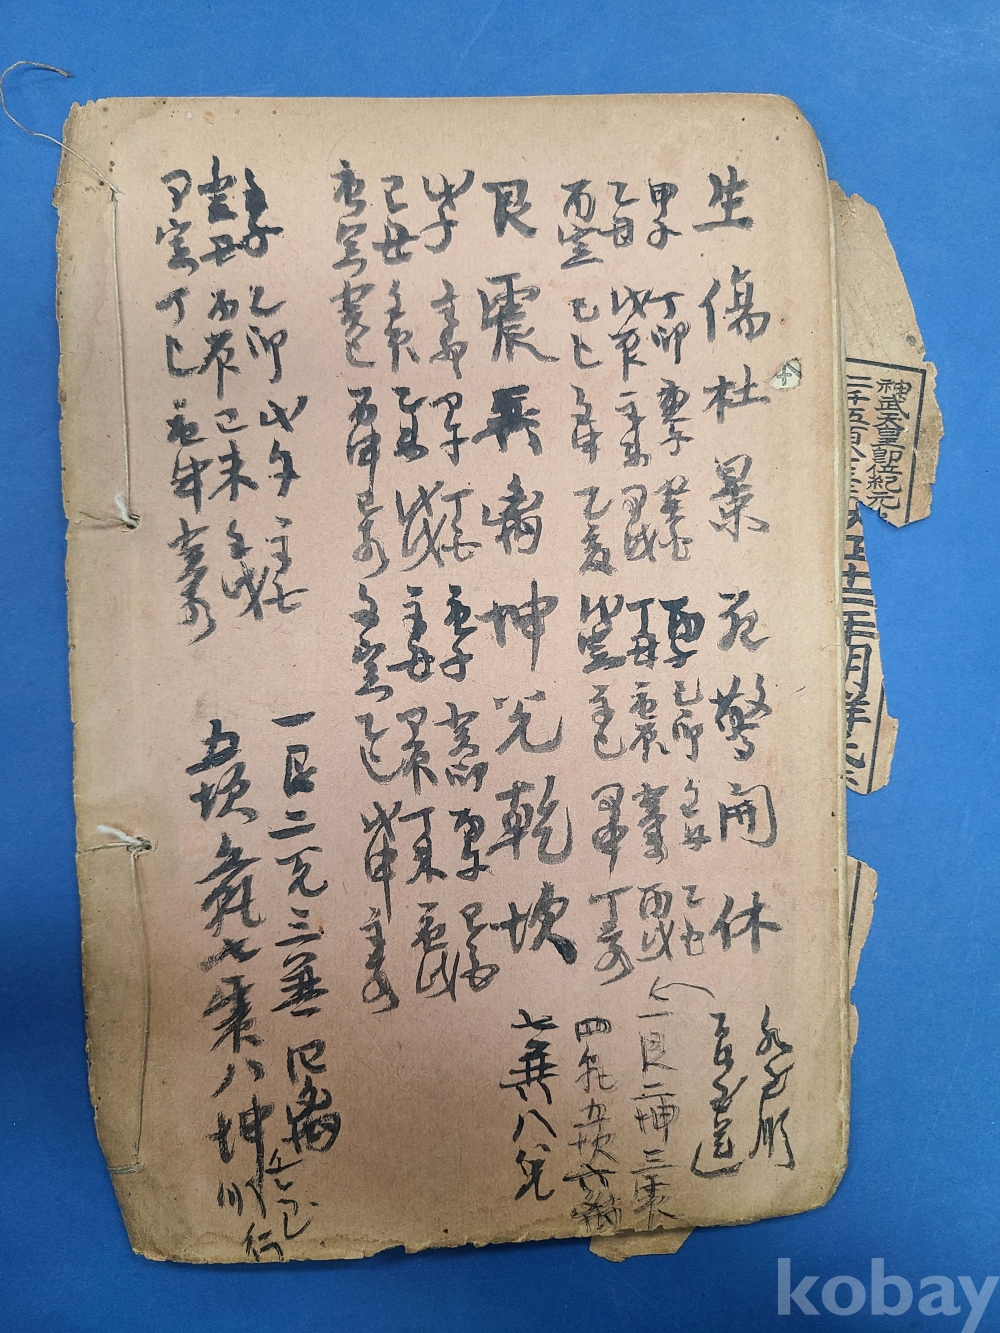 生傷杜景死驚開休
甲子 丁卯 庚午 癸酉 丙子 己卯 壬午 乙酉
乙丑 戊辰 辛未 甲戌 丁丑 庚辰 癸未 丙戌
丙寅 己巳 壬申 乙亥 戊寅 辛巳 甲申 丁亥
一艮二坤三震
四乾五坎六離
七巽八兌
艮震巽离坤兌乾坎
戊子 辛卯 甲午 丁酉 庚子 癸卯 丙午 己酉
己丑 壬辰 乙未 戊戌 辛丑 甲辰 丁未 庚戌
庚寅 癸巳 丙申 己亥 壬寅 乙巳 戊申 辛亥
壬子 乙卯 戊午 辛酉
癸丑 丙辰 己未 壬戌
甲寅 丁巳 庚申 癸亥
一艮二兌三巽四离
五坎六乾七震八坤 順行
神武天皇即位紀元
kobay